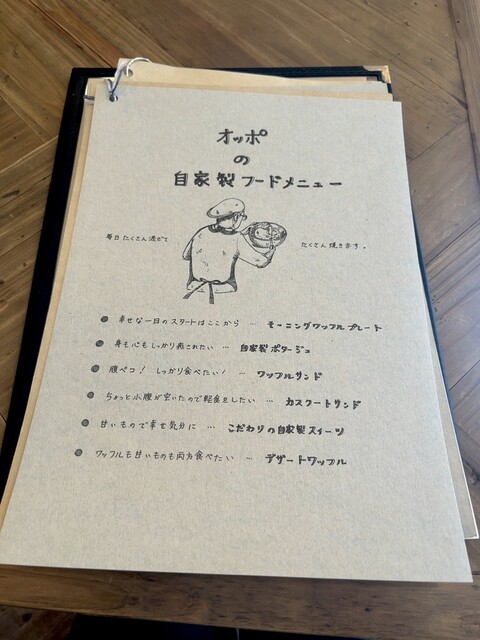 オッポ
の
自家製フードメニュー
毎日たくさん混ぜて たくさん焼きます。
幸せな一日のスタートはここから … モーニングワッフルプレート
身も心もしっかり癒されたい … 自家製ポタージュ
腹ペコ! しっかり食べたい! … ワッフルサンド
ちょっと小腹が空いたので軽食をしたい … カスクートサンド
甘いもので幸せ気分に … こだわりの自家製スイーツ
ワッフルも甘いものも両方食べたい … デザートワッフル